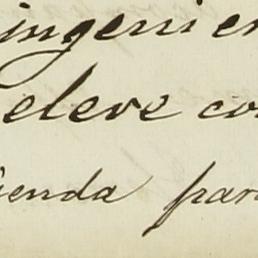 ingenier
eleve con
ienda para